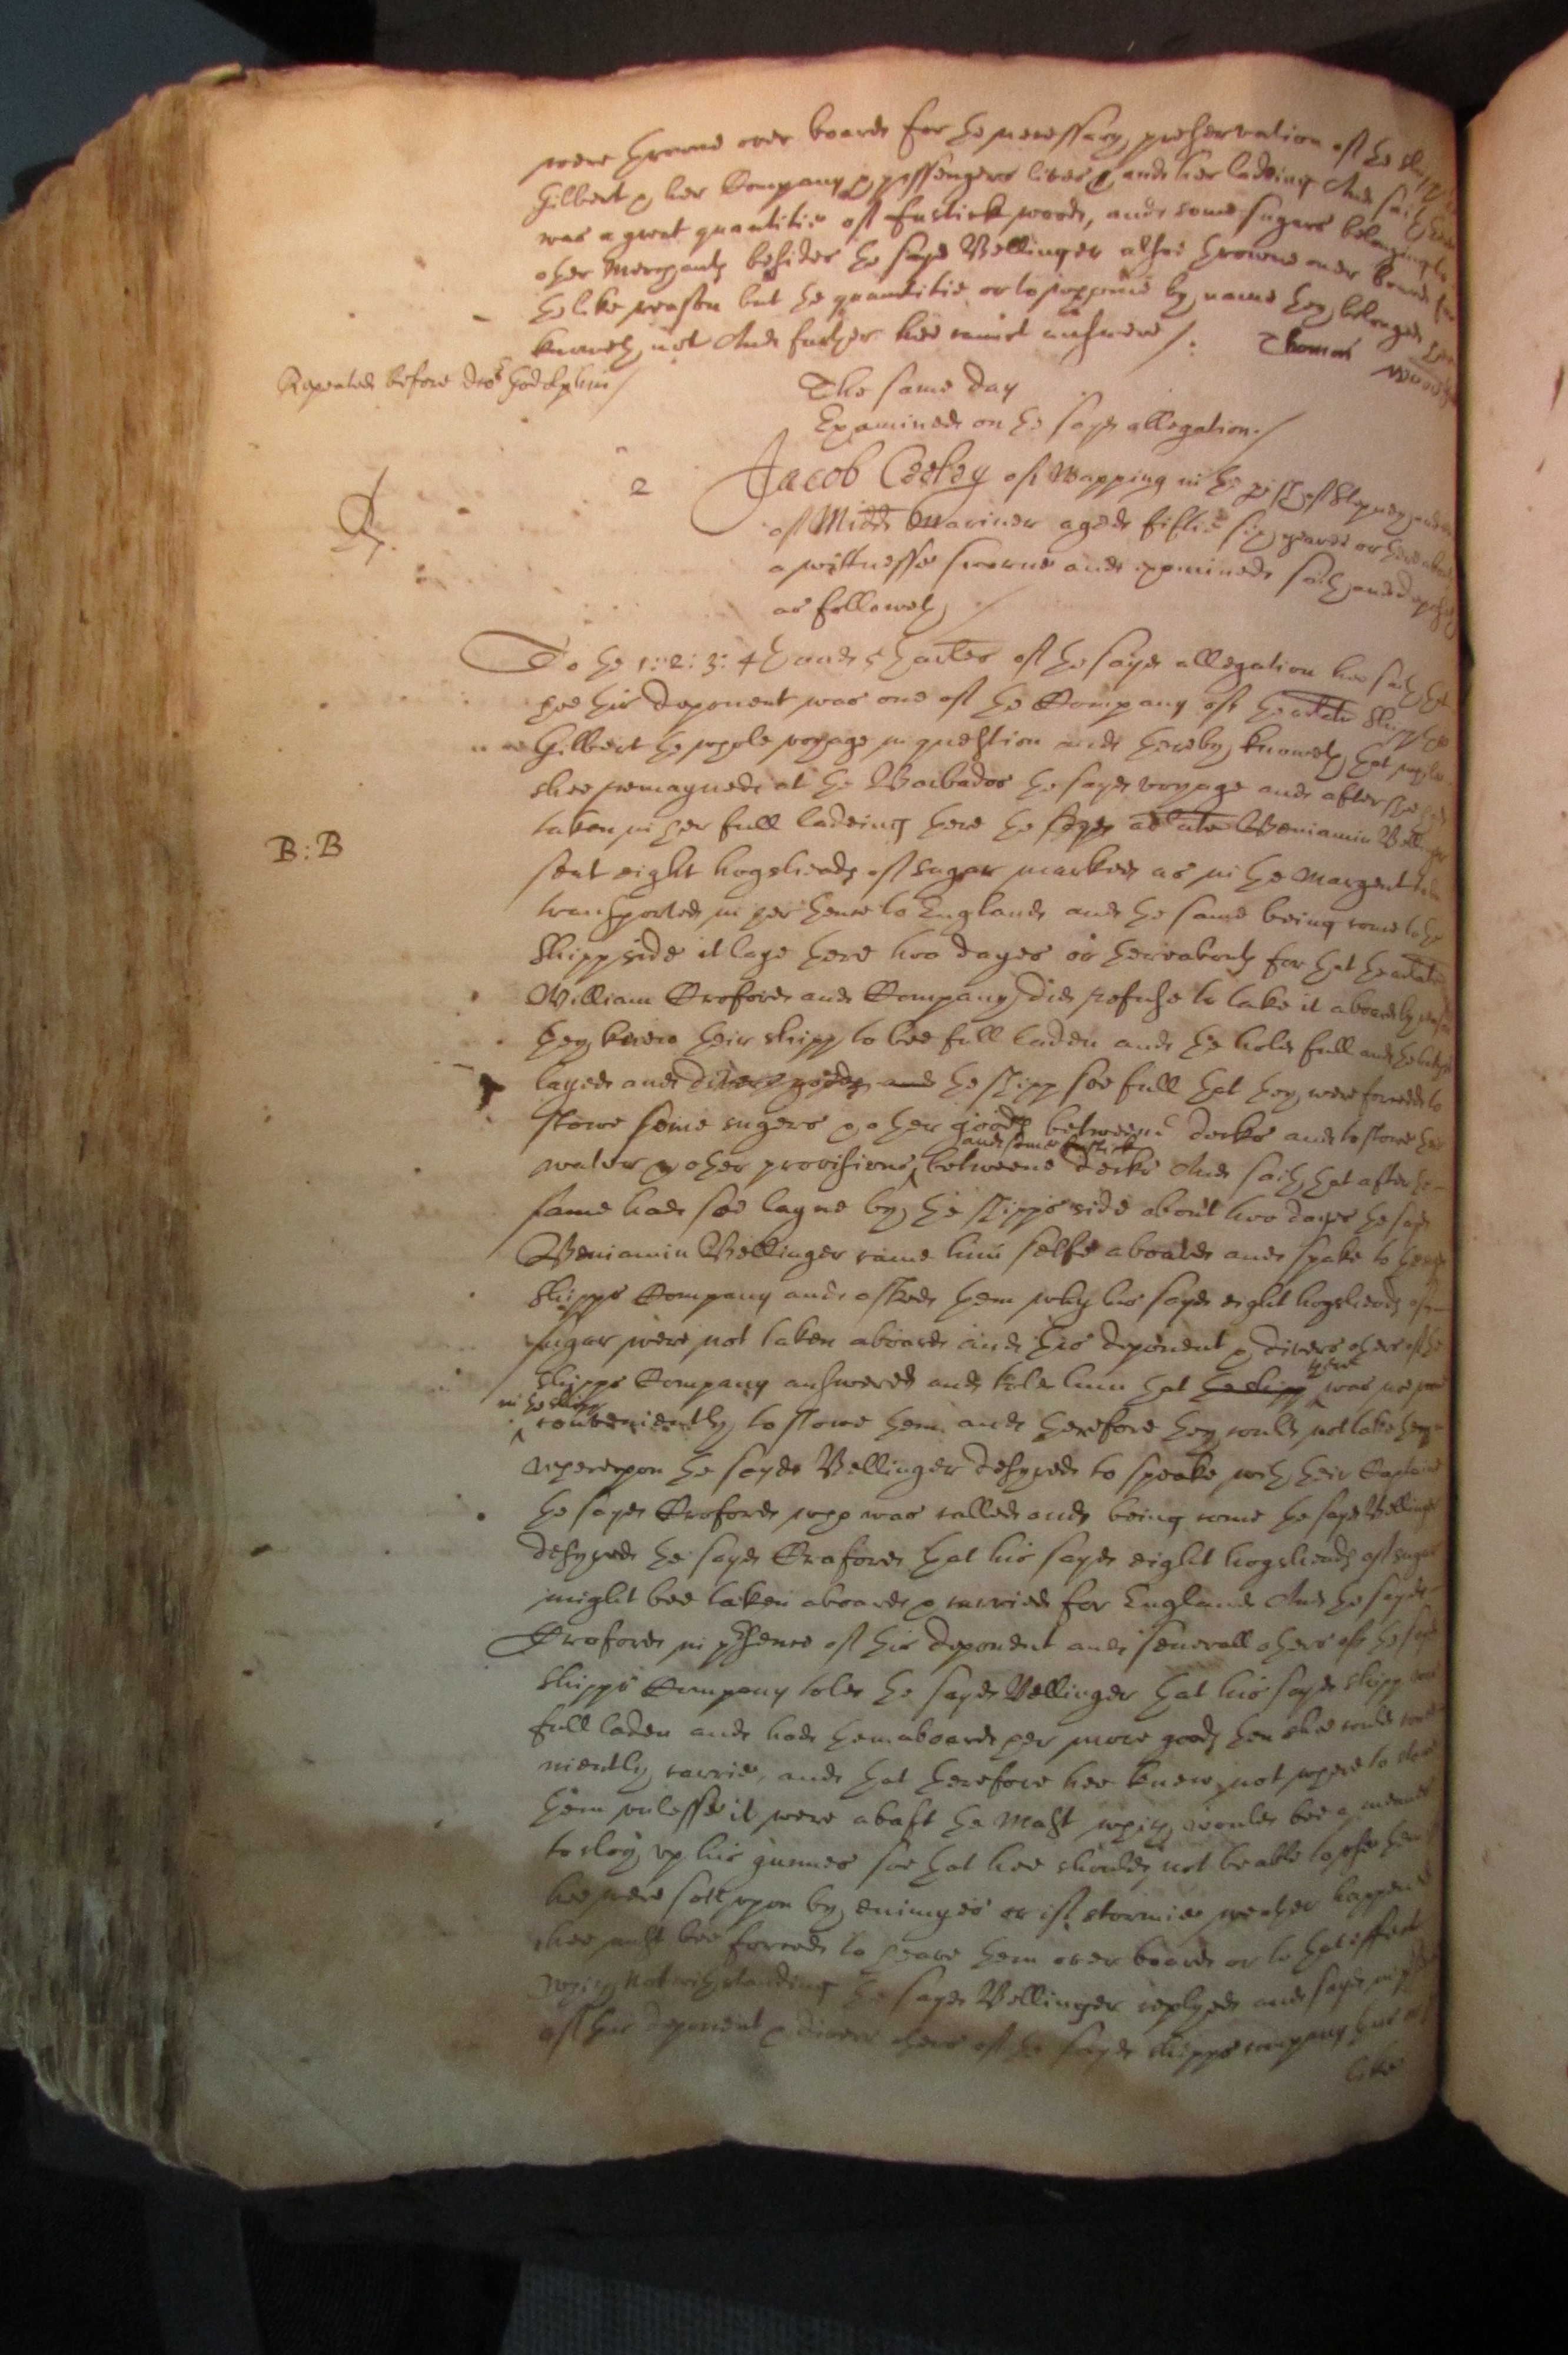 were throwne over boarde for the necessary preservation of the shipp
Gilbert & her Company & passengers lives & and her ladeing And saith there
was a great quantitie of fustick wood, and some sugars belonging to
other Merchants besides the sayd Bellinger alsoe throwne over board for
the like reason but the quantitie or to whome by name they belonged hee
knoweth not And further hee cannot answere /:
Thomas
Repeated before doctor Godolphin /
The same day
Examined on the sayd allegation. /
2
Jacob Cockey of Wapping in the parish of Stepney and
of Midd Mariner aged fiftie six yeares or thereabouts
a wittnesse sworne and examined saith and deposeth
as followeth /
To the 1: 2: 3: 4th and 5th arles of the sayd allegation hee saith that
hee this deponent was one of the Company of the arlate Shipp the
Gilbert the whole voyage in question and thereby knoweth that while
shee remayned at the Barbados the sayd voyage and after shee had
taken in her full ladeing there the sayd arlate Beniamin Bellinger
B: B
sent eight hogsheads of sugar marked as in the margent to be
transported in her thence to England and the same being come to the
Shipp side it laye there two dayes or thereabouts for that the arlate
William Croford and Company did refuse to take it aboard by reason
they knew their shipp to bee full laden and the hold full and the hatches
layed and divers goods and the shipp soe full that they were forced to
stowe some sugers & other goods betweene decks and to stowe her
and some fustick
water & other provisions betweene decks And saith that after the
same had soe layne by the shipps side about two dayes the sayd
Beniamin Bellinger came him selfe aboard and spake to the
Shipps Company and asked them why his sayd eight hogsheads of
sugar were not taken aboard and this deponent & divers others of the
there
shipps Company answered and told him that the shipp was no roome
in the shipp
conveniently to stowe them and therefore they could not take them
whereupon the sayd Bellinger desyred to speake with their Captaine
the sayd Croford who was called and being come the sayd Bellinger
desyred the sayd Croford that his sayd eight hogsheads of sugar
might bee taken aboard & carried for England And the sayd
Croford in presence of this deponent and severall others of the sayd
Shipps Company told the sayd Bellinger that his sayd shipp was
full laden and had then aboard her more goods then shee could conve
niently carrie, and that therefore hee knew not where to stow
them unlesse it were abaft the Mast which would bee a meanes
to cloy up his gunnes soe that hee should not be able to use them if
hee were sett upon by enimyes or if stormie weather happened
hee must bee forced to heave them over board or to that effect
which notwithstanding the sayd Bellinger replyed and sayd in
of this deponent & divers others of the sayd shipps company that
like